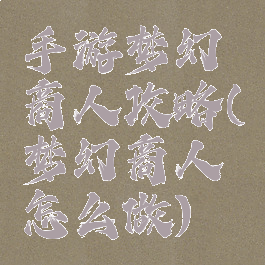 手游梦幻
商人攻略(
梦幻商人
怎么做)